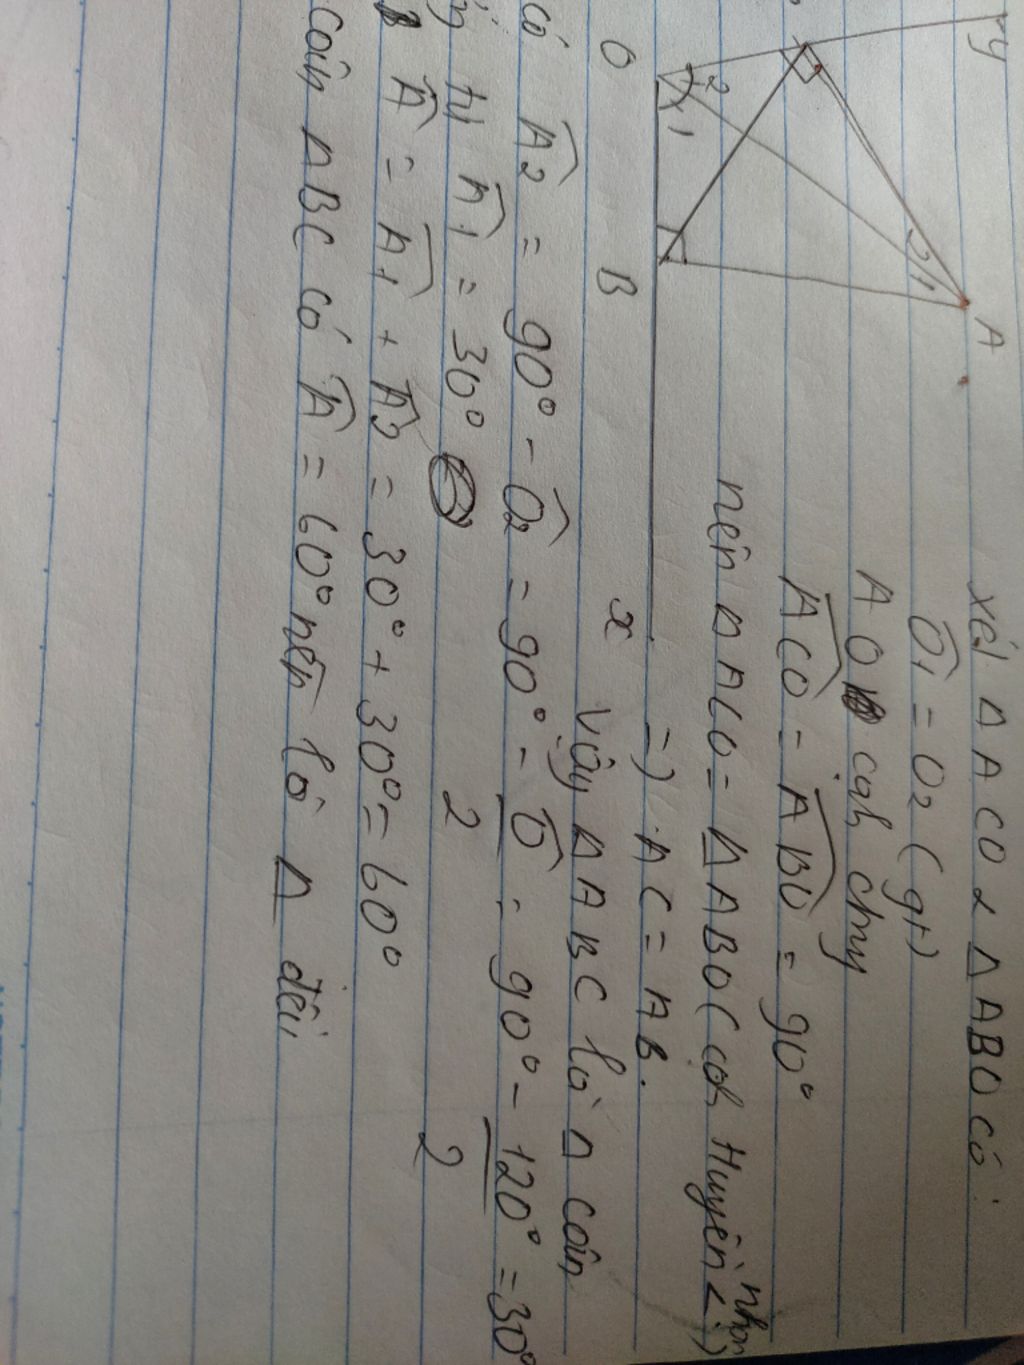 y
A
O
B
x
2
1
1
Xét Δ ACO & Δ ABO có:
Ô1 = O2 (gt)
AO cạh chug
ACO = ABO = 90°
nên Δ ACO = Δ ABO (cạh Huyền nhọn)
=) AC = AB.
Vậy Δ ABC là Δ cân
có Â2 = 90° - Ô2 = 90° - Ô/2 = 90° - 120°/2 = 30°
tự Â1 = 30°
Â = Â1 + Â2 = 30° + 30° = 60°
cân ΔBC có Â = 60° nên là Δ đều